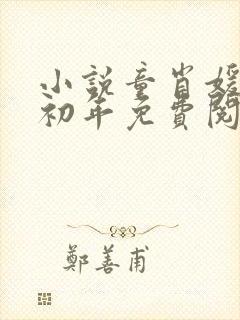 小説童肖媛
初年免費閱
鄭善甫